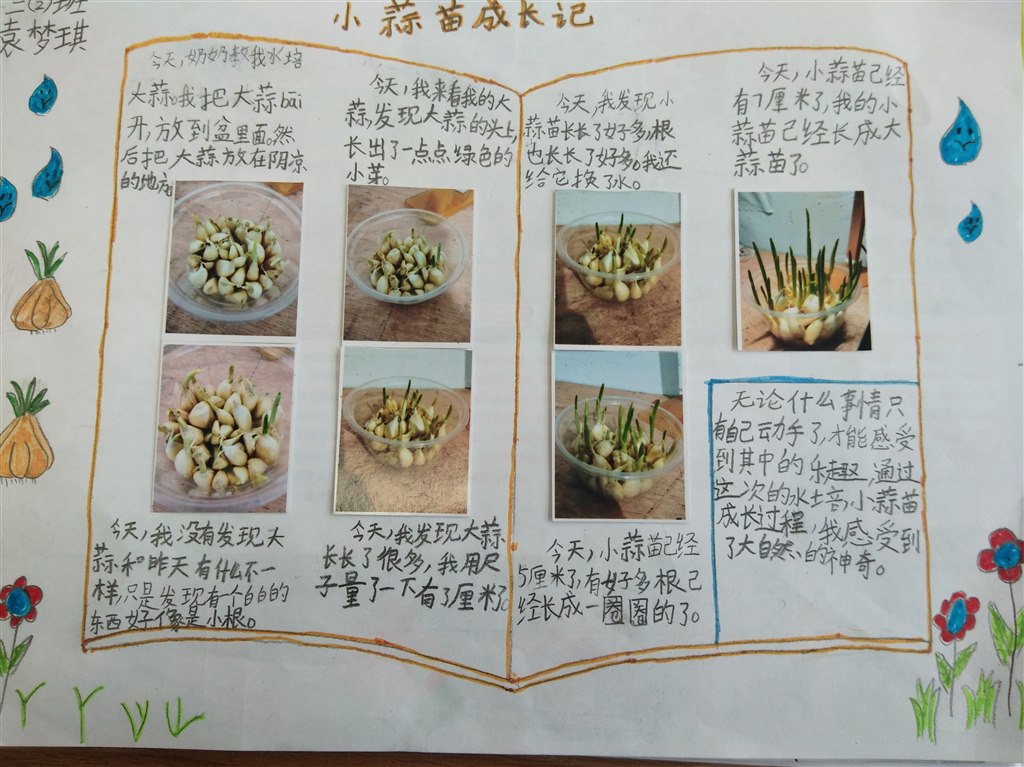 三(2)班
袁梦琪
小蒜苗成长记
今天,奶奶教我水培
大蒜。我把大蒜bāi
开,放到盆里面。然
后把大蒜放在阴凉
的地方。
今天,我没有发现大
蒜和昨天有什么不一
样,只是发现有一个白白的
东西好像是小根。
今天,我来看我的大
蒜,发现大蒜的头上,
长出了一点点绿色的
小芽。
今天,我发现大蒜
长长了很多,我用尺
子量了一下有了厘米了。
今天,我发现小
蒜苗长长了好多,根
也长长了好多。我还
给它换了水。
今天,小蒜苗已经
5厘米了,有好多根已
经长成一圈圈的了。
今天,小蒜苗已经
有7厘米了,我的小
蒜苗已经长成大
蒜苗了。
无论什么事情只
有自己动手了,才能感受
到其中的乐趣,通过
这次的水培,小蒜苗
成长过程,我感受到
了大自然的神奇。